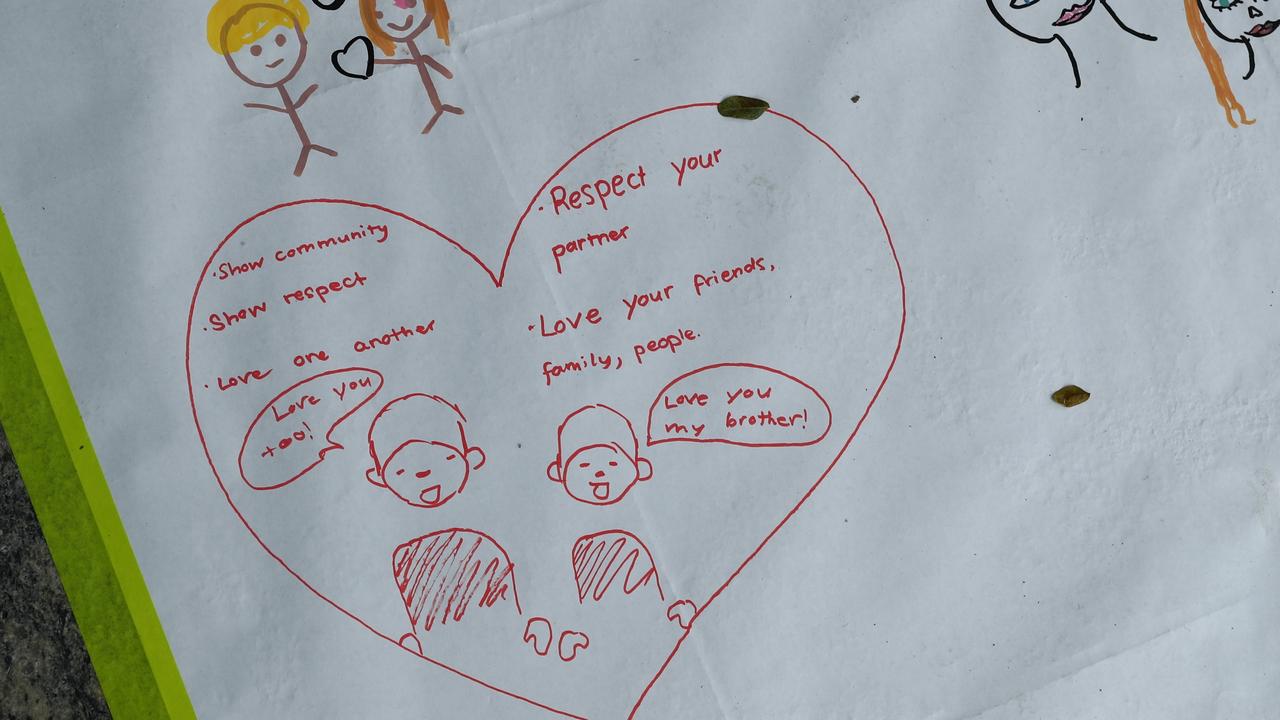 · Show community
· Show respect
· Love one another
Love you
too!
· Respect your
partner
· Love your friends,
family, people.
Love you
my brother!